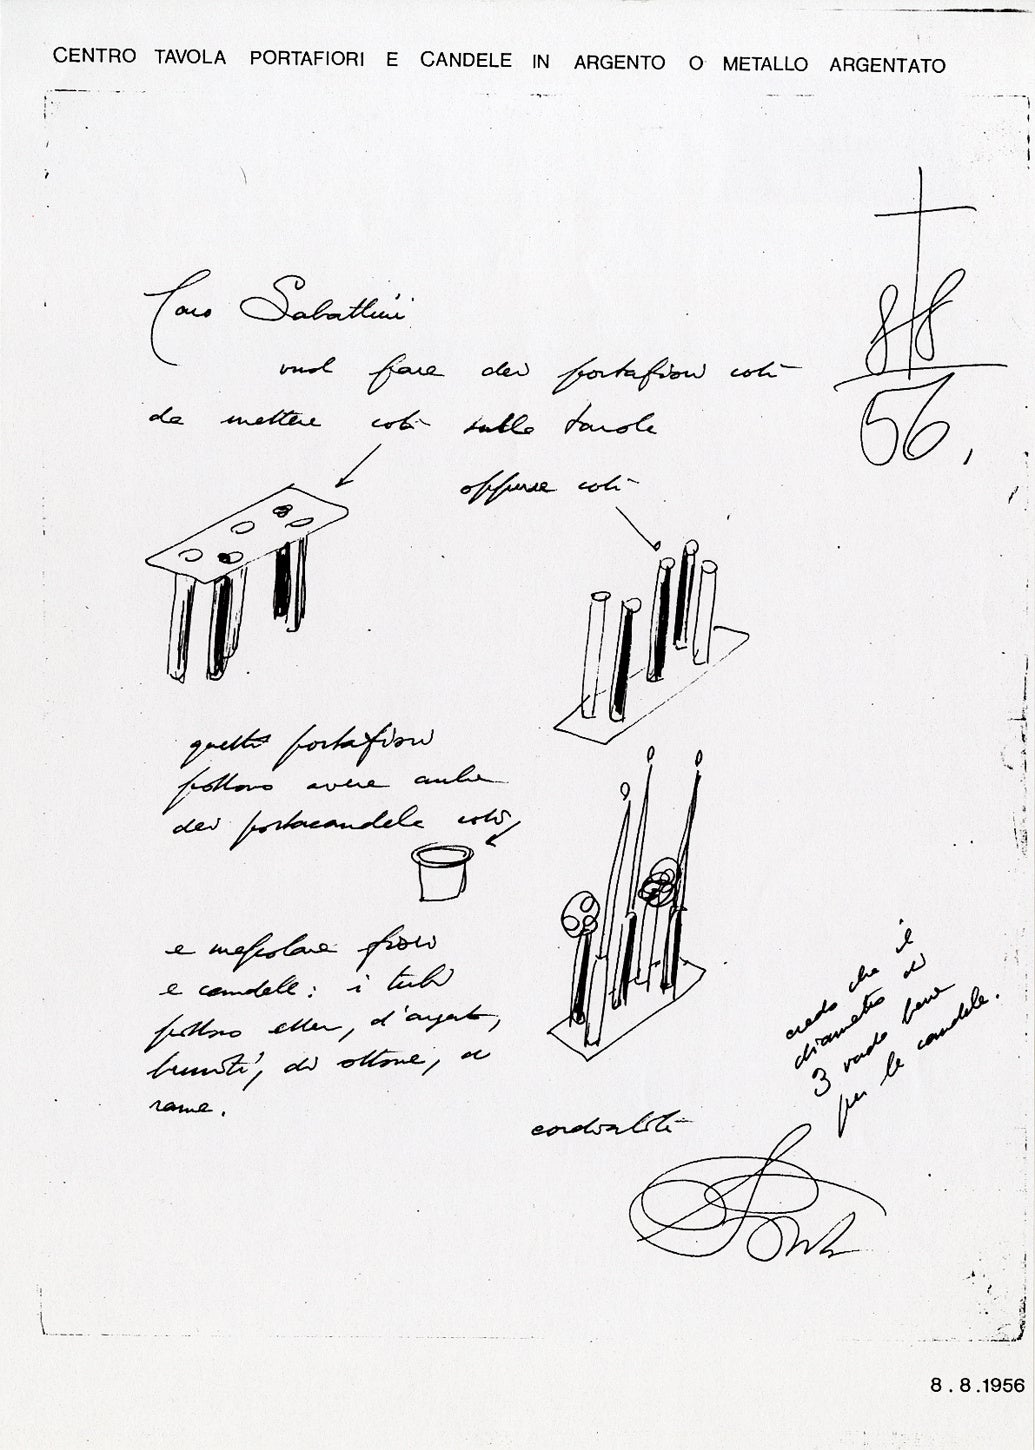 CENTRO TAVOLA PORTAFIORI E CANDELE IN ARGENTO O METALLO ARGENTATO
8 8
56,
Caro Sabattini
vuol fare dei portafiori così
da mettere così sulle tavole
oppure così
questi portafiori
possono avere anche
dei portacandele così
e mescolare fiori
e candele: i tubi
possono esser, d'argento,
bruniti, di ottone, di
rame.
credo che il
diametro di
3 vada bene
per le candele.
cordialità
Ponti
8.8.1956